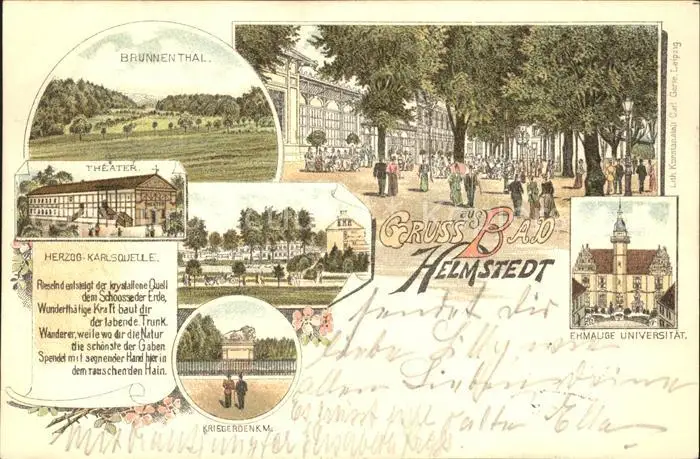 BRUNNENTHAL.
THEATER.
HERZOG-KARLSQUELLE.
Rieselnd entsteigt der krystallene Quell
dem Schoosse der Erde,
Wunderthätige Kraft baut dir
der labende Trunk.
Wanderer, weile wo dir die Natur
die schönste der Gaben
Spendet mit segnender Hand hier in
dem rauschenden Hain.
GRUSS aus BAD
HELMSTEDT
EHMALIGE UNIVERSITÄT.
KRIEGERDENKM.
Lith. Kunstanstalt Carl Garte, Leipzig
sendet dir
liebe Lilly
allen Lieben
Es grüsst
Ella